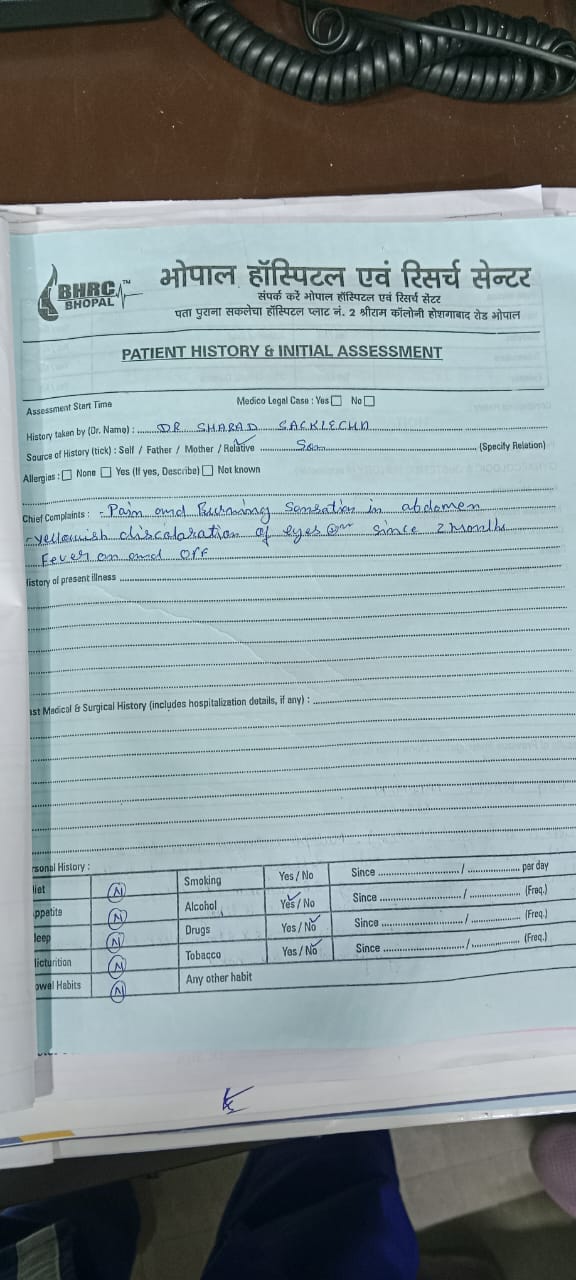 BHRC™
BHOPAL
भोपाल हॉस्पिटल एवं रिसर्च सेन्टर
संपर्क करें भोपाल हॉस्पिटल एवं रिसर्च सेंटर
पता पुराना सकलेचा हॉस्पिटल प्लाट नं. 2 श्रीराम कॉलोनी होशगाबाद रोड भोपाल
PATIENT HISTORY & INITIAL ASSESSMENT
Assessment Start Time Medico Legal Case : Yes No
History taken by (Dr. Name) : DR SHARAD SACKLECHA
Source of History (tick) : Self / Father / Mother / Relative Son (Specify Relation)
Allergies : None Yes (If yes, Describe) Not known
Chief Complaints : - Pain and Burning Sensation in abdomen
- yellowish discalaration of eyes since 2 months
Fever on and off
istory of present illness
ast Medical & Surgical History (includes hospitalization details, if any) :
rsonal History :
iet N Smoking Yes / No Since / per day
ppetite N Alcohol Yes / No Since / (Freq.)
leep N Drugs Yes / No Since / (Freq.)
licturition N Tobacco Yes / No Since / (Freq.)
owel Habits N Any other habit